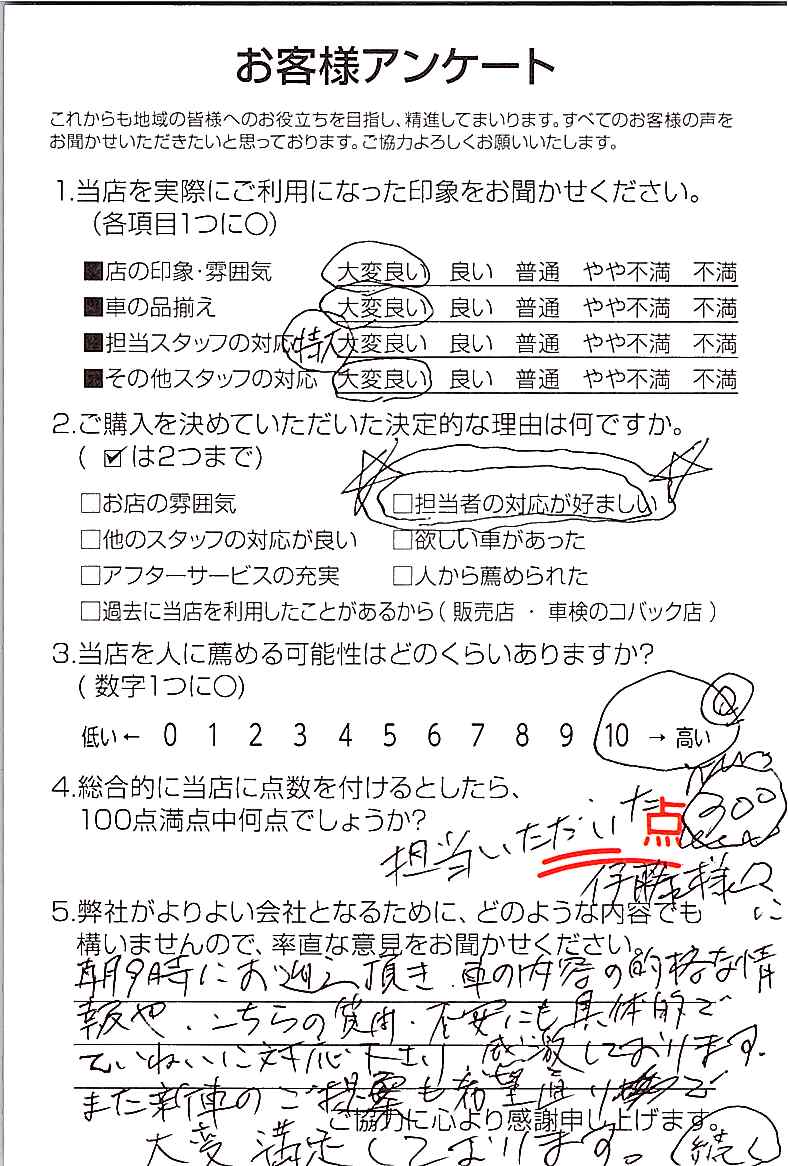 お客様アンケート
これからも地域の皆様へのお役立ちを目指し、精進してまいります。すべてのお客様の声を
お聞かせいただきたいと思っております。ご協力よろしくお願いいたします。
1.当店を実際にご利用になった印象をお聞かせください。
(各項目1つに○)
■店の印象・雰囲気 大変良い 良い 普通 やや不満 不満
■車の品揃え 大変良い 良い 普通 やや不満 不満
■担当スタッフの対応 特大 大変良い 良い 普通 やや不満 不満
■その他スタッフの対応 大変良い 良い 普通 やや不満 不満
2.ご購入を決めていただいた決定的な理由は何ですか。
( ☑は2つまで)
□お店の雰囲気 □担当者の対応が好ましい
□他のスタッフの対応が良い □欲しい車があった
□アフターサービスの充実 □人から薦められた
□過去に当店を利用したことがあるから( 販売店 ・ 車検のコバック店 )
3.当店を人に薦める可能性はどのくらいありますか?
( 数字1つに○)
低い← 0 1 2 3 4 5 6 7 8 9 10 → 高い
4.総合的に当店に点数を付けるとしたら、
100点満点中何点でしょうか?
300
点
担当いただいた
伊藤様
に
5.弊社がよりよい会社となるために、どのような内容でも
構いませんので、率直な意見をお聞かせください。
朝9時にお迎え頂き、車の内容の的格な情
報や、こちらの質問・不安にも具体的で
ていねいに対応下さり 感激しております。
また新車のご提案も希望通りで
ご協力に心より感謝申し上げます。
大変満足しております。(続く)